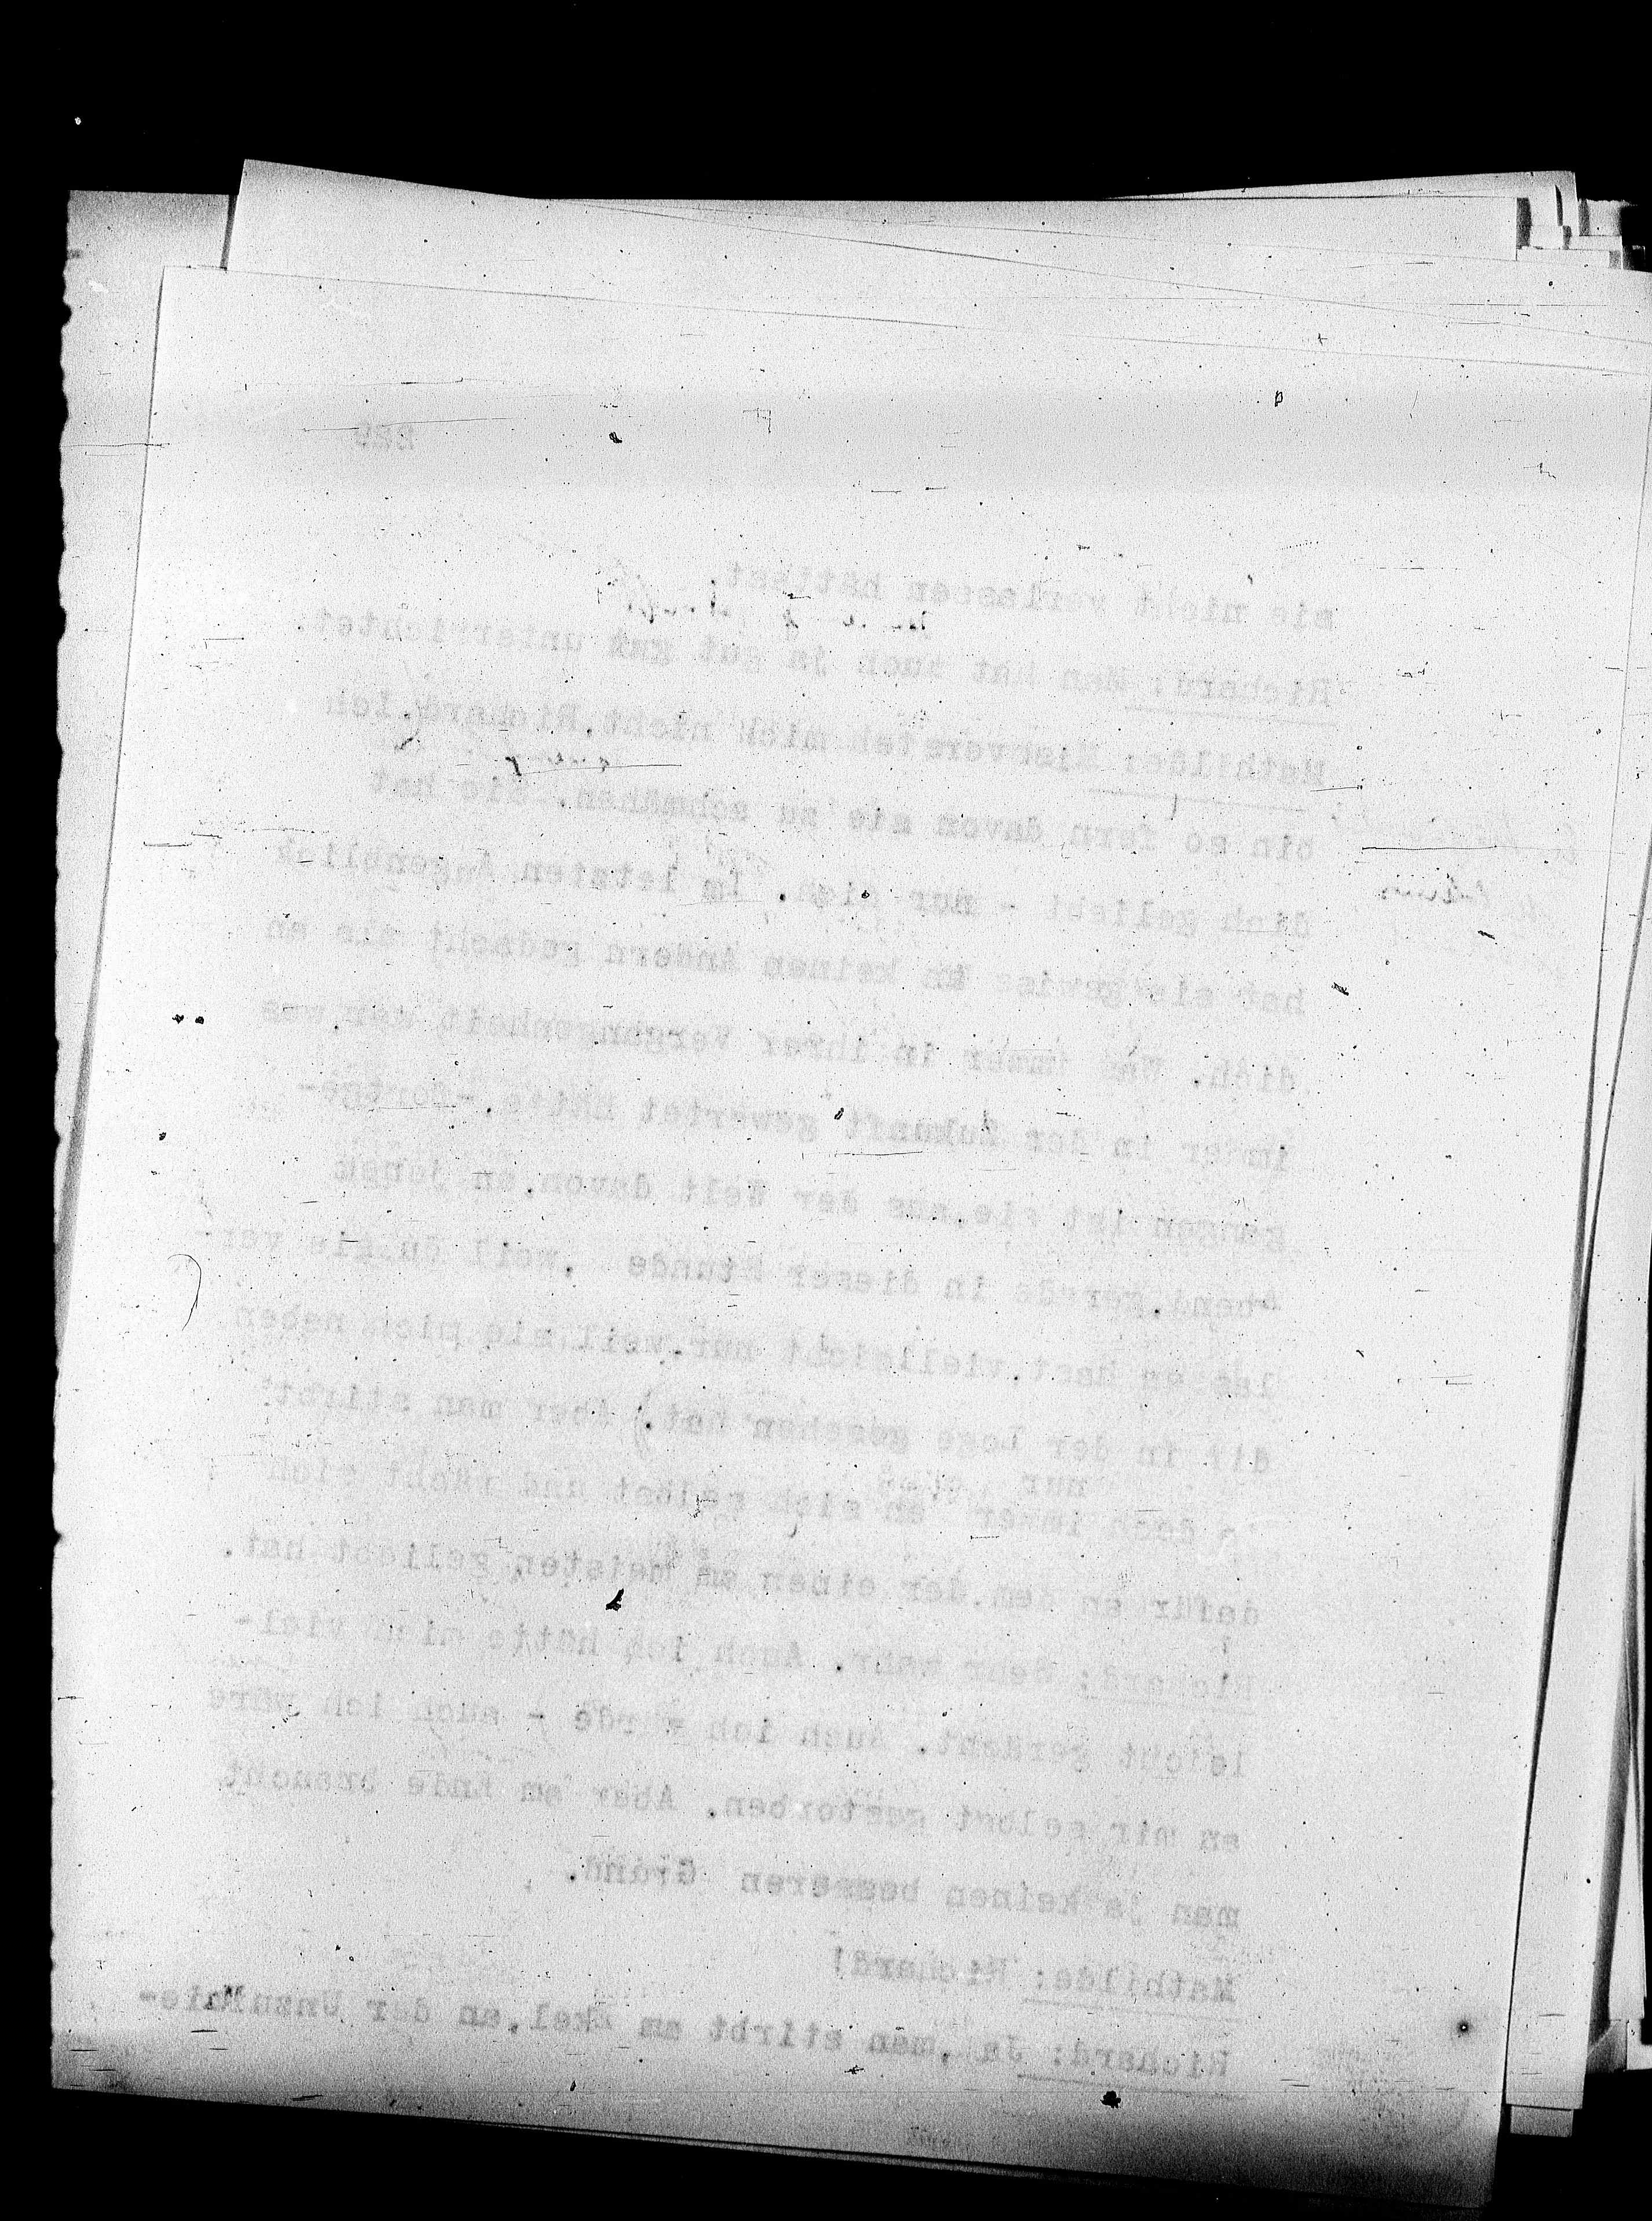 sie nicht verlassen hättest.
Richard: Man hat auch ja gut unterrichtet.
Mathilde: Missversteh mich nicht,Richard.Ich
bin so fern davon sie zu schmähen. Sie hat
dich geliebt - nur dich. Im letzten Augenblick
hat sie gewiss an keinen andern gedacht als an
dich. Was immer in ihrer Vergangenheit war,was
immer in der Zukunft gewartet hätte,-fortge-
gangen ist sie,aus der Welt davon,an jenem
Abend,gerade in dieser Stunde ,weil du sie ver-
lassen hast,vielleicht nur,weil sie mich neben
dir in der Loge gesehen hat. Aber man stirbt
nur
doch immer an sich selbst und rächt sich
dafür an dem,der einen am meisten geliebt hat.
Richard: Sehr wahr. Auch ich hätte mich viel-
leicht gerächt. Auch ich würde - auch ich wäre
an mir selbst gestorben. Aber am Ende braucht
man ja keinen besseren Grund.
Mathilde: Richard!
Richard: Ja ,man stirbt am Ekel,an der